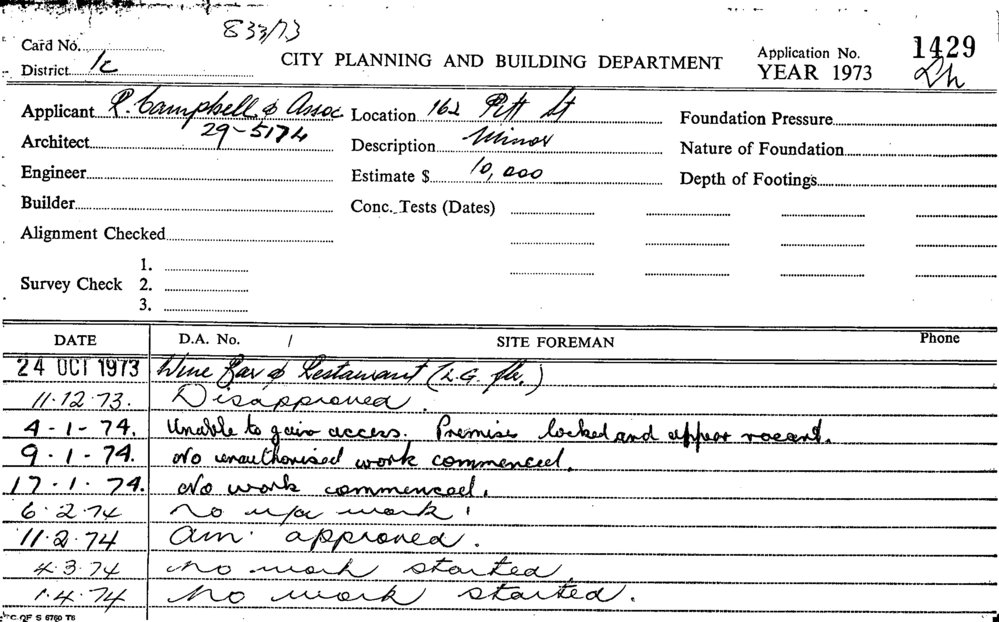 833/73
Card No.
District 1c
CITY PLANNING AND BUILDING DEPARTMENT
Application No. 1429
YEAR 1973
Applicant P. Campbell & Assoc Location 162 Pitt St Foundation Pressure
29-5174
Architect Description Minor Nature of Foundation
Engineer Estimate $ 10,000 Depth of Footings
Builder Conc. Tests (Dates)
Alignment Checked
1.
Survey Check 2.
3.
DATE D.A. No. / SITE FOREMAN Phone
24 OCT 1973 Wine Bar & Restaurant (L.G. flr.)
11.12.73. Disapproved.
4-1-74. Unable to gain access. Premises locked and appear vacant.
9-1-74. No unauthorised work commenced.
17-1-74. No work commenced.
6.2.74 no u/a work.
11.2.74 am. approved.
4.3.74 no work started
1.4.74 no work started.